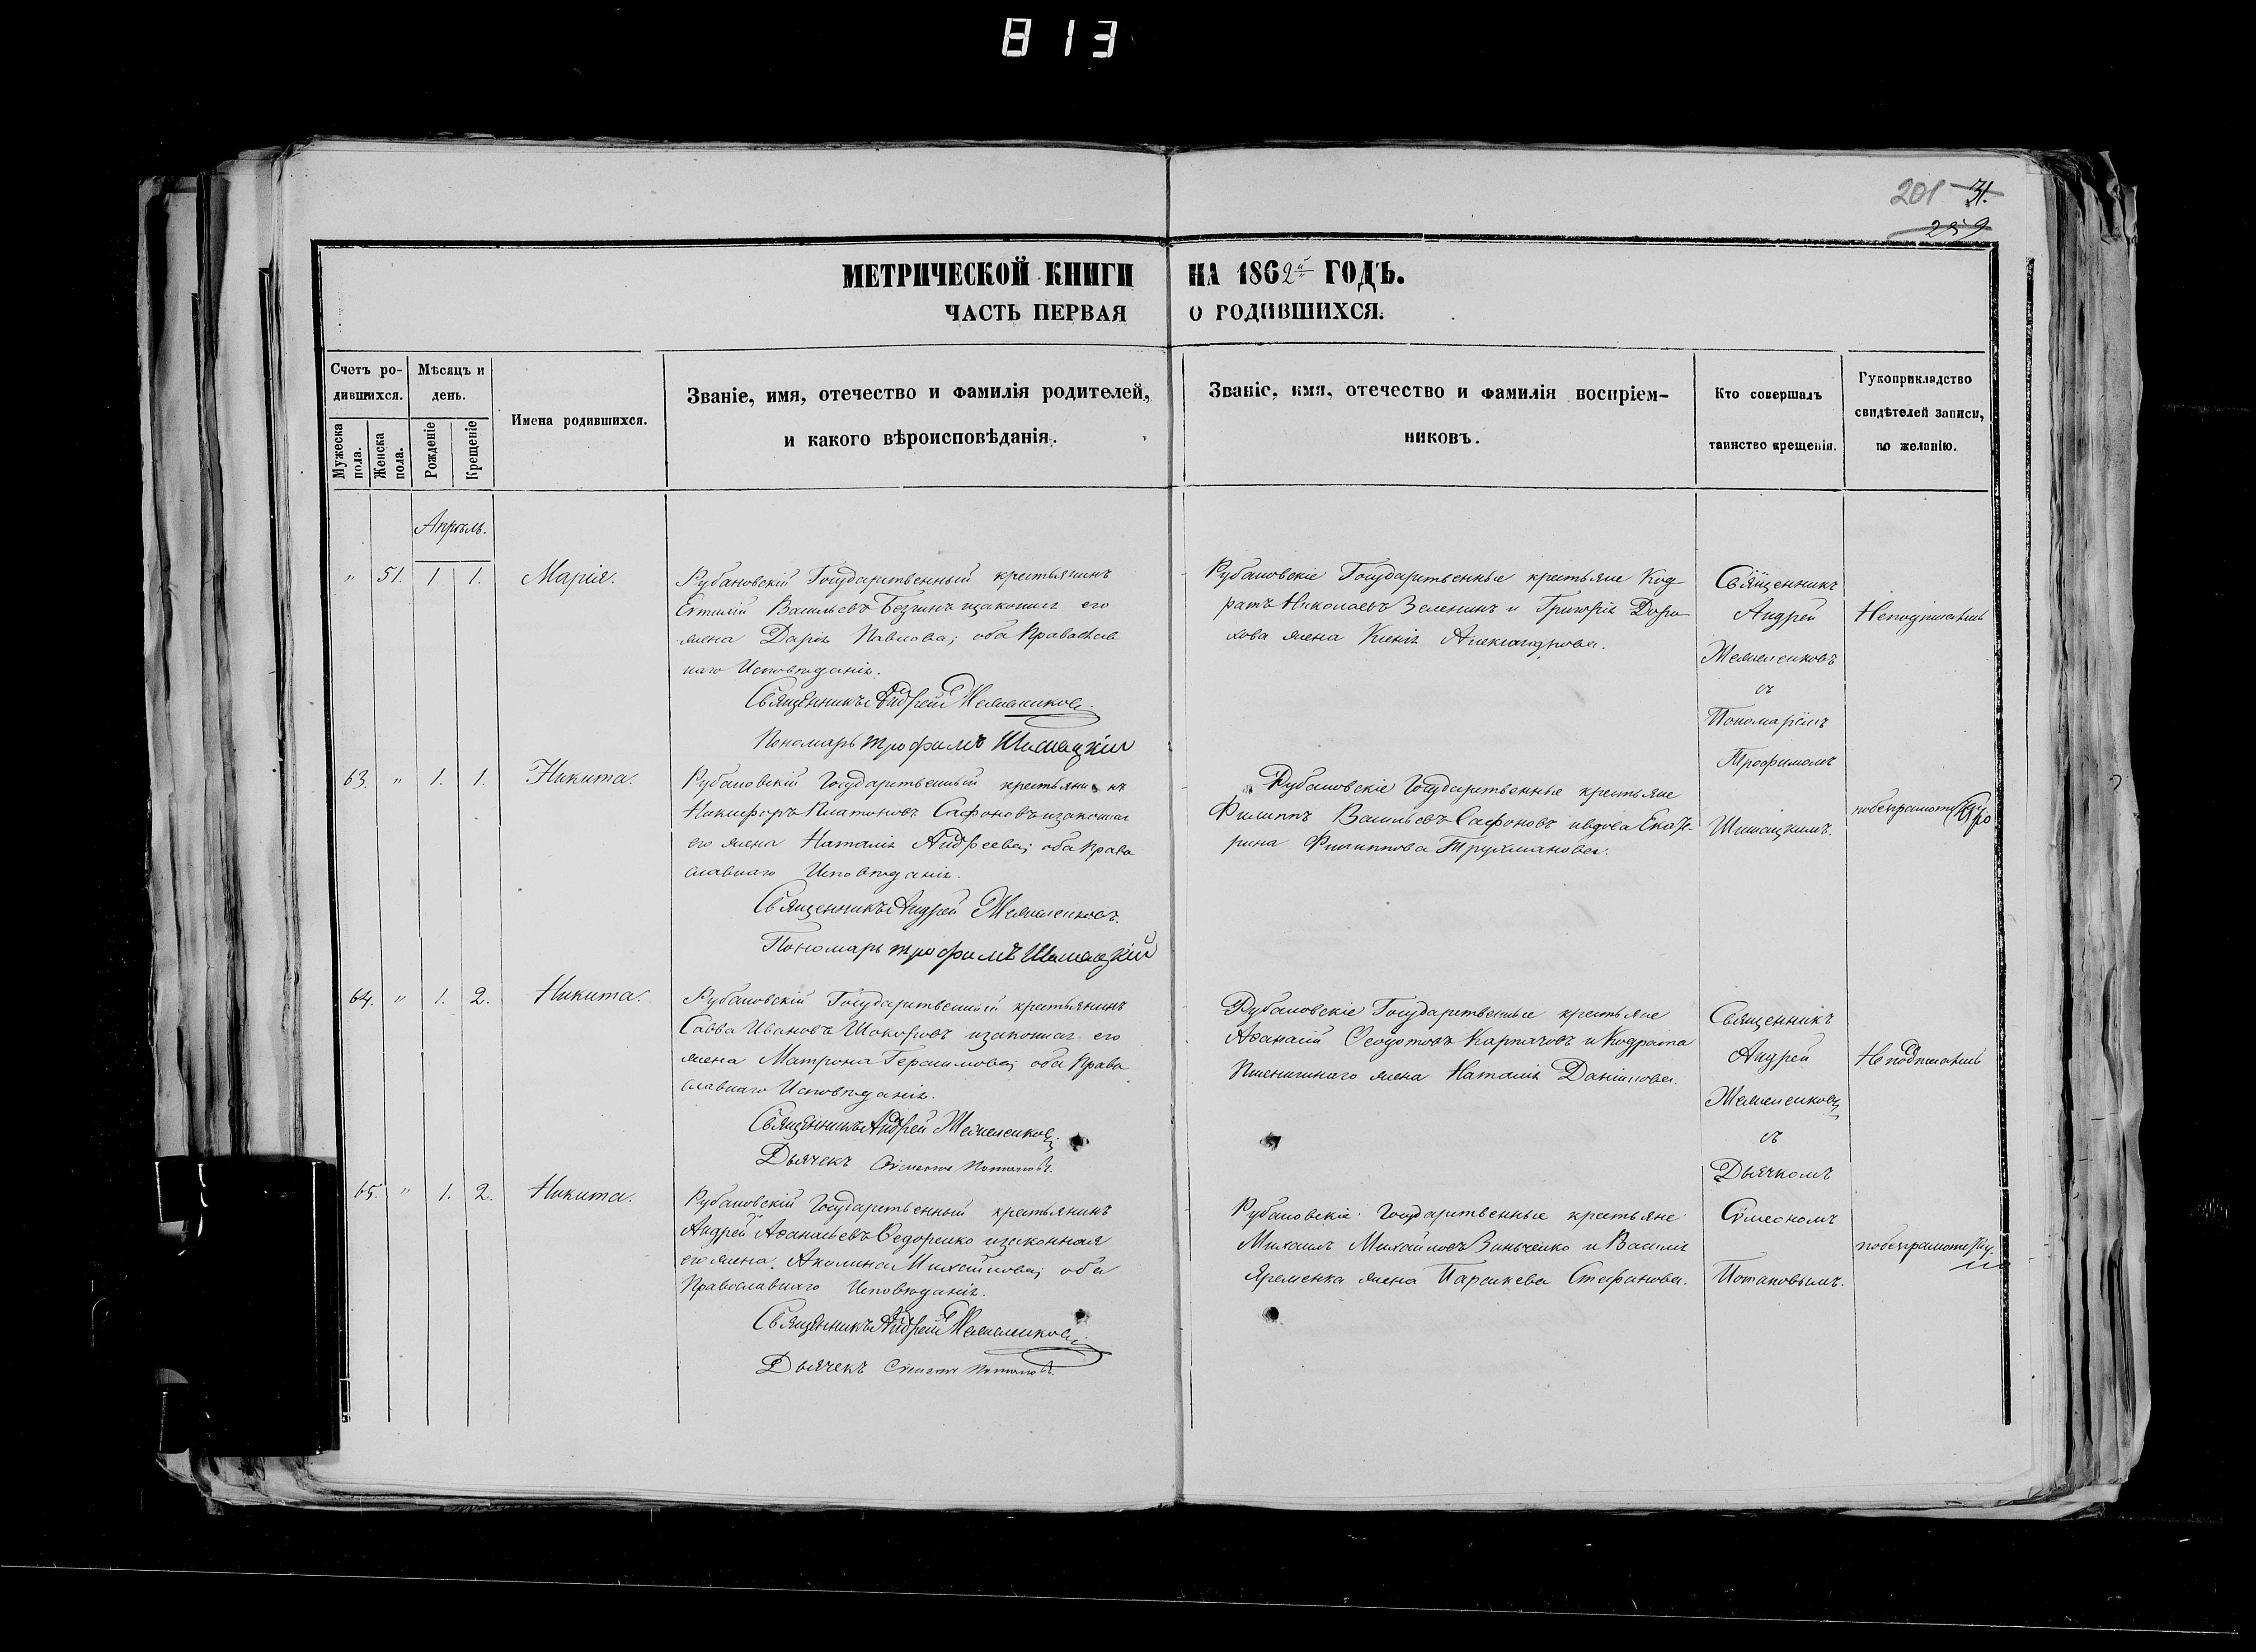 813
201 31.
259
МЕТРИЧЕСКОЙ КНИГИ НА 1862й ГОДЪ.
ЧАСТЬ ПЕРВАЯ О РОДИВШИХСЯ.
Счетъ ро-
дившихся.
Мужеска пола.
Женска пола.
Мѣсяцъ и
день.
Рожденіе
Крещеніе
Имена родившихся.
Званіе, имя, отечество и фамилія родителей,
и какого вѣроисповѣданія.
Званіе, имя, отечество и фамилія воспріем-
никовъ.
Кто совершалъ
таинство крещенія.
Рукоприкладство
свидѣтелей записи,
по желанію.
Апрѣль.
" 51. 1. 1. Марія.
Рубановскій Государственный крестьянинъ
Евтихій Васильевъ Безгинъ изаконная его
жена Дарія Павлова; оба Православ
наго Исповѣданія.
Священникъ Андрей Желѣзниковъ
Пономарь Трофимъ Шишацкій
Рубановскіе Государственные крестьяне Код-
ратъ Николаевъ Зеленинъ и Григорія Доро
хова жена Ксенія Александрова.
Священникъ
Андрей
съ
Пономарёмъ
Трофимомъ
Шишацкимъ.
63. " 1. 1. Никита.
Рубановскій Государственный крестьянинъ
Никифоръ Платоновъ Сафоновъ изаконная
его жена Наталія Андреева; оба Право
славнаго Исповѣданія.
Священникъ Андрей
Пономарь Трофимъ Шишацкій
Рубановскіе Государственные крестьяне
Филиппъ Васильевъ Сафоновъ ивдова Екате-
рина Филиппова Трухманова.
побезграмотству
64. " 1. 2. Никита.
Рубановскій Государственный крестьянинъ
Савва Ивановъ изаконная его
жена Матрона Герасимова; оба Право
славнаго Исповѣданія.
Священникъ Андрей
Дьячекъ Сѵмеонъ Потаповъ.
Рубановскіе Государственные крестьяне
Аѳанасій Ѳеодотовъ Карпачовъ и Кодрата
Пшеничнаго жена Наталія Даніилова.
Священникъ
Андрей
съ
Дьячкомъ
Сѵмеономъ
Потаповымъ.
65. " 1. 2. Никита.
Рубановскій Государственный крестьянинъ
Андрей Аѳанасьевъ Ѳедоренко изаконная
его жена Акилина Михайлова; оба
Православнаго Исповѣданія.
Священникъ Андрей
Дьячекъ Сѵмеонъ Потаповъ.
Рубановскіе Государственные крестьяне
Михаилъ Михайловъ Виньченко и Василія
Яременка жена Параскева Стефанова.